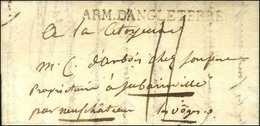 ARM. D'ANGLETERRE
a la Citoyenne
m. C. d'arbois chez
Propriétaire à Jubainville
par neufchâteau les vôges